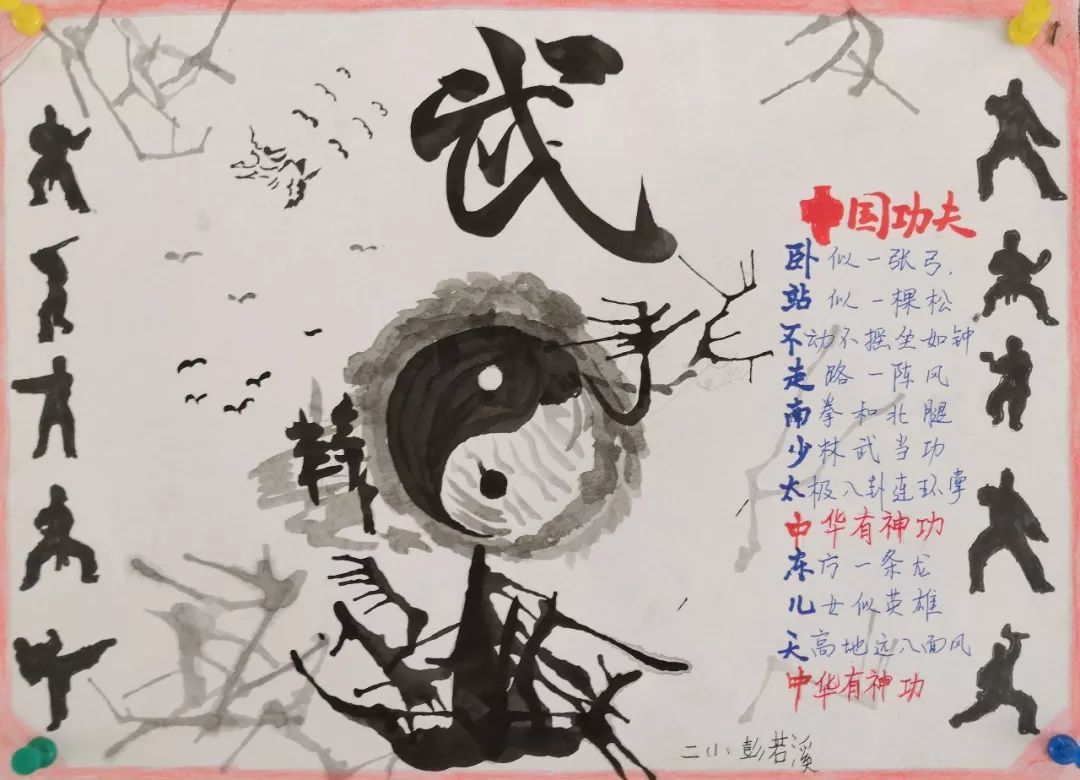 武
中国功夫
卧似一张弓,
站似一棵松
不动不摇坐如钟
走路一阵风
南拳和北腿
少林武当功
太极八卦连环掌
中华有神功
东方一条龙
儿女似英雄
天高地远八面风
中华有神功
二(1)彭若溪